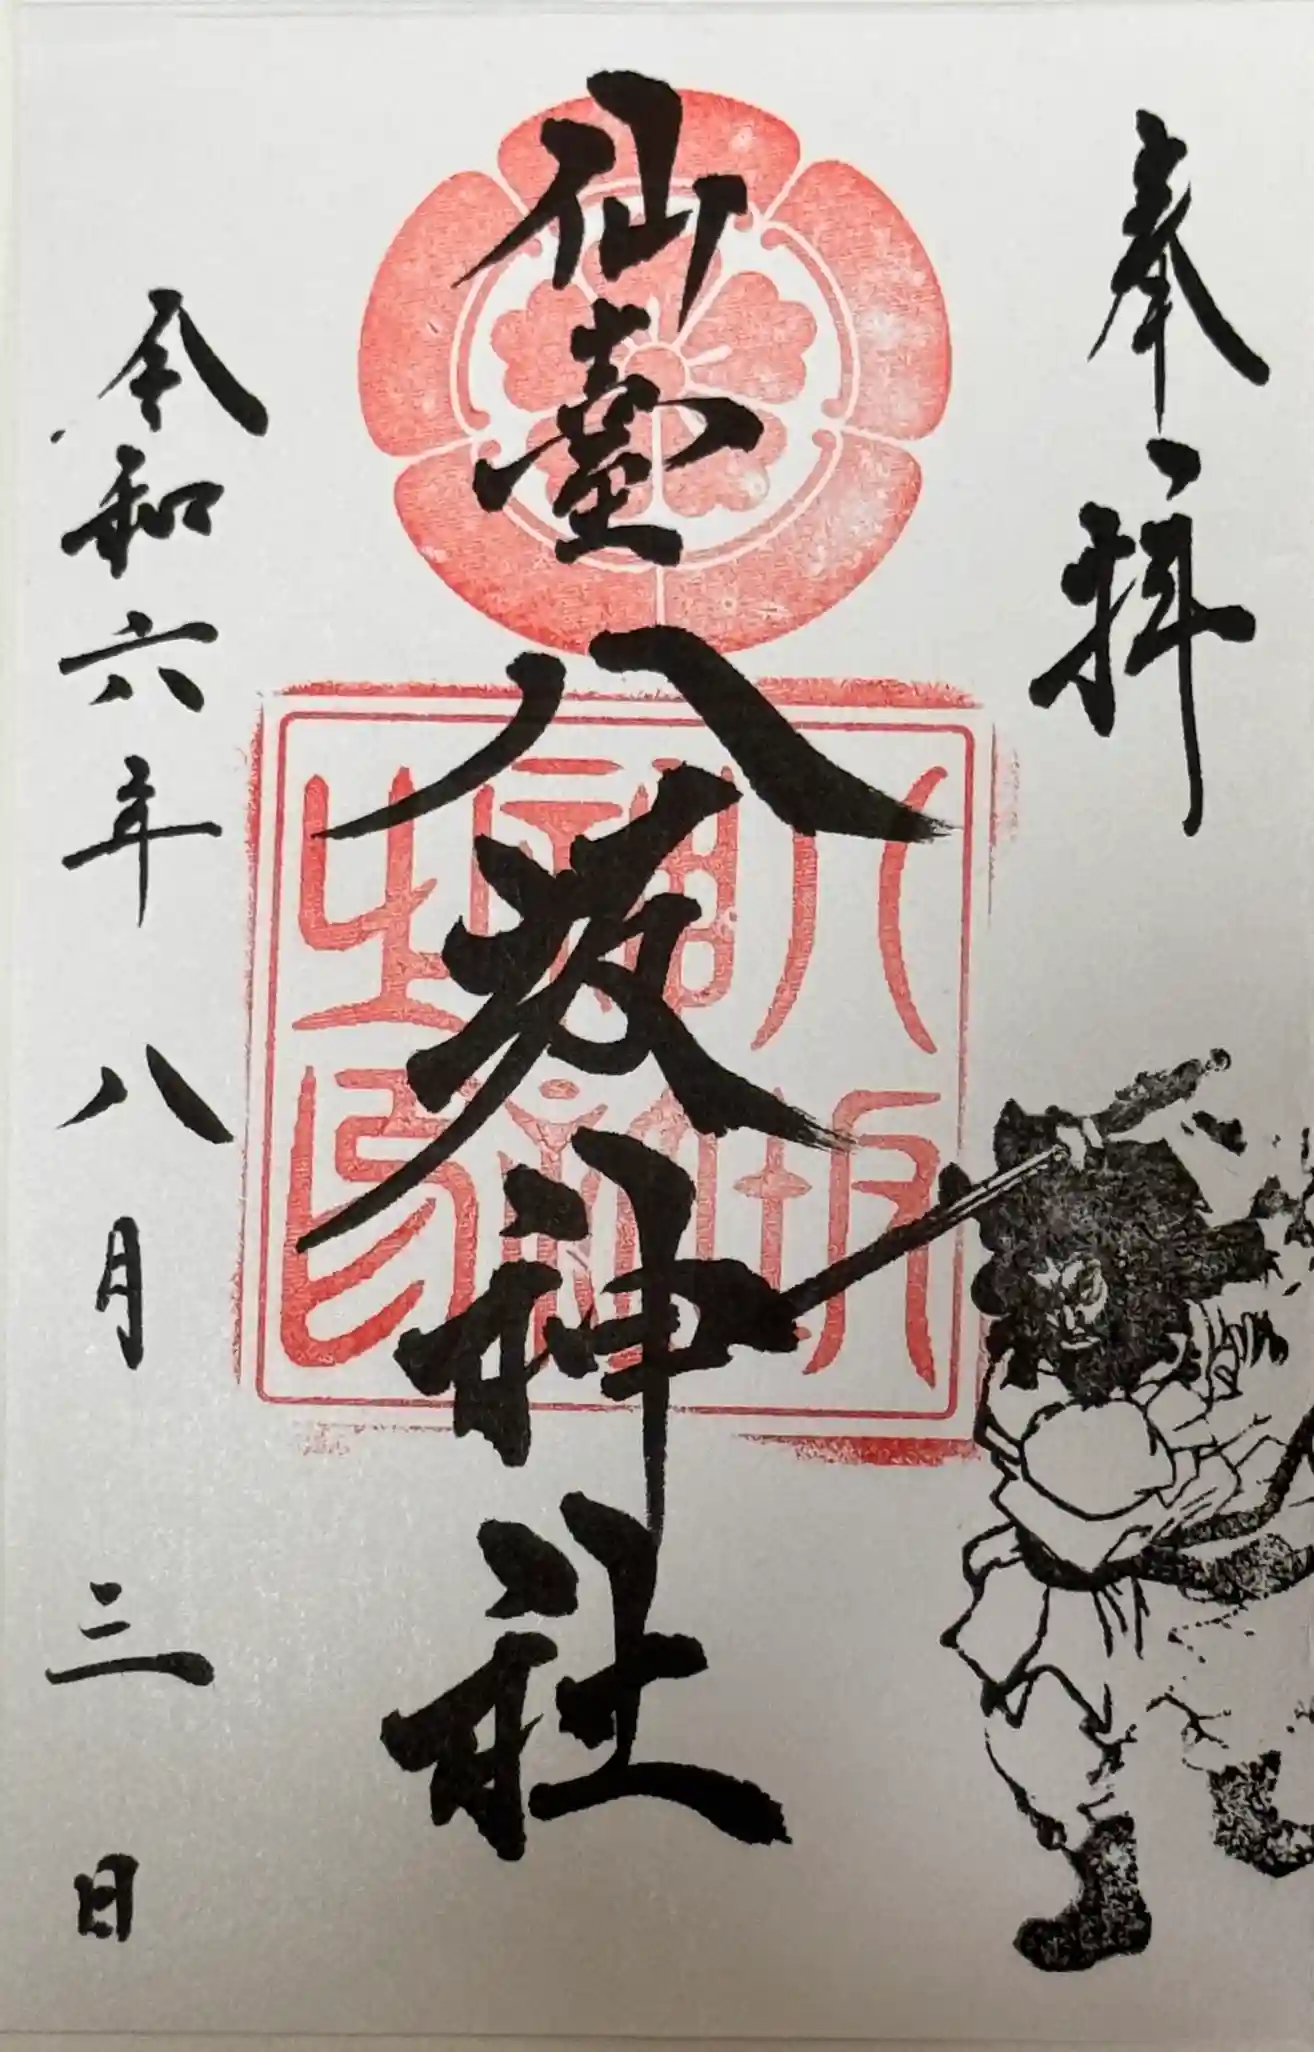 奉拝
仙臺八坂神社
令和六年八月三日
八坂神社之印